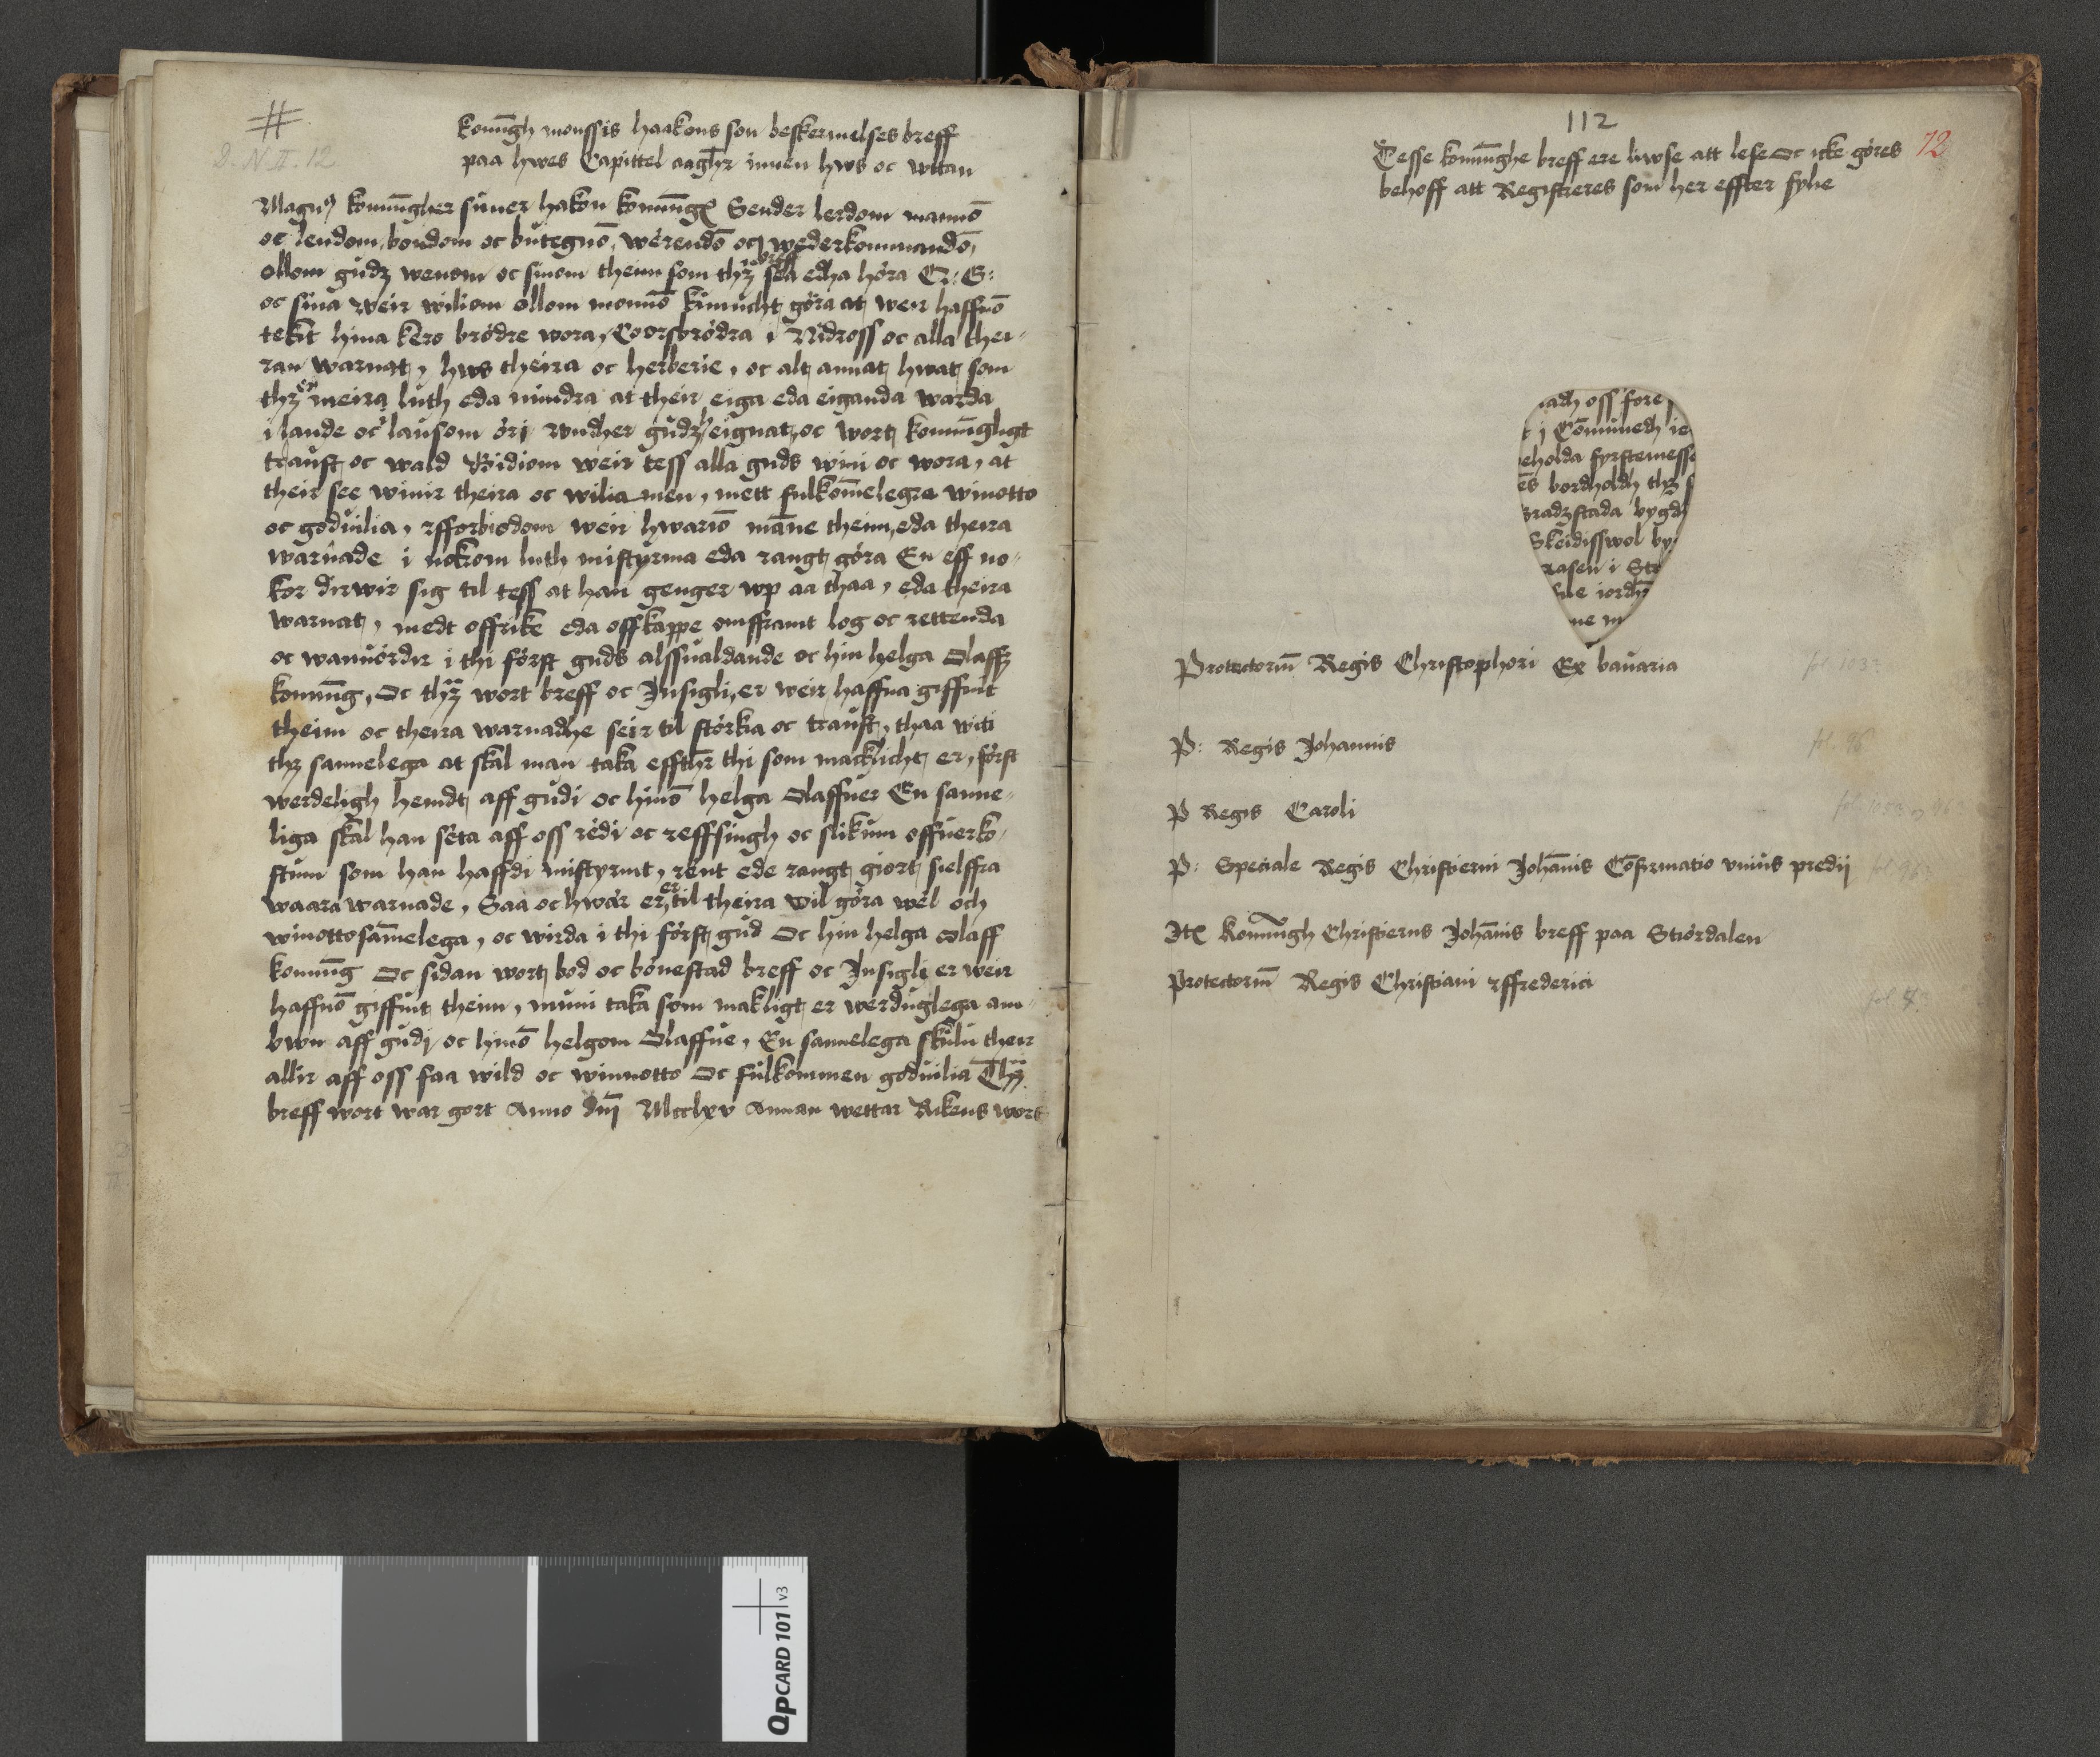 #
D. N. II. 12.
konūgh monssis haakons son beskermelses breff
paa hwes Capittel aaghr innen hws oc wttan
Magn9 konūgher suner hakon konūgx Sender lerdom mannō
oc lendom, bondom oc butegnō, werendō oc wederkommandō,
ollom gudz wenom oc sinom theim som thz breff sea edha höra Q: G:
oc sina weir wiliom ollom monnō kunnicht göra at weir haffuō
tekit hina kero brödre wora, Coorsbrödra i Nidross oc alla thei-
ran warnat, hws theira oc herberie, oc alt annat hwat som
thz er meira luth eda mindra at their eiga eda eiganda warda
i lande oc lausom öri wndher gudz eignat, oc wort konūgligt
traust oc wald Bidiom weir tess alla guds wini oc wora, at
their see winir theira oc wilia men, mett fulkōmelegre winotto
oc goduilia, rfforbiodom weir hwariō māne theim, eda theira
warnade i nokrom luth mistyrma eda rangt göra En eff no-
kor dirwir sig til tess at han genger wp aa thaa, eda theira
warnat, medt offrike eda offkappe omfframt log oc rettenda
oc wanuördir i thi först guds alssualdande oc hin helga Olaff
konūg, Oc thz wort breff oc Insigli, er weir haffua giffuit
theim oc theira warnadhe seir til störkia oc traust, thaa witi
thz sannelega at skal man taka effthr thi som macklicht er, först
werdeligh hemdt aff gudi oc hinō helga Olaffuer En sanne-
liga skal han seta aff oss redi oc reffsingh oc slikum offuerko-
stum som han haffdi mistyrmt, rent ede rangt giort sielffra
waara warnade, Saa oc hwar er er til theira wil göra wel och
winottosāmelega, oc wirda i thi först gud Oc hin helga olaff
konūg Oc sidan wort bod oc bönestad breff oc Insigli er weir
haffuō giffuit theim, muni taka som makligt er werduglega am-
bwn aff gudi oc hinō helgom Olaffue, En sannelega skulu their
allir aff oss faa wild oc winnotto Oc fulkommen goduilia Thz
breff wort war gort Anno dnī Mcclxv Annan wettar Rikens wors
112
Tesse konūnghe breff ere liwse att lese Oc icke göres
behoff att Registreres som her effter fylie
12
adh oss fore
t j Cōmunedh ie
eholda fyrstemesse
es bordholdh thz s
radzstada bygd
Skeidisswol by
rasen i Str
sle iordh
ne m
Protectoriū Regis Christophori Ex bauaria
P: Regis Johannis
P Regis Caroli
P: Speciale Regis Christierni Johānis Cōfirmatio vnius predij
Itx Konūngh Christierns Johānis breff paa Stiördalen
Protectoriū Regis Christiani rffrederici
QpCARD 101 v3